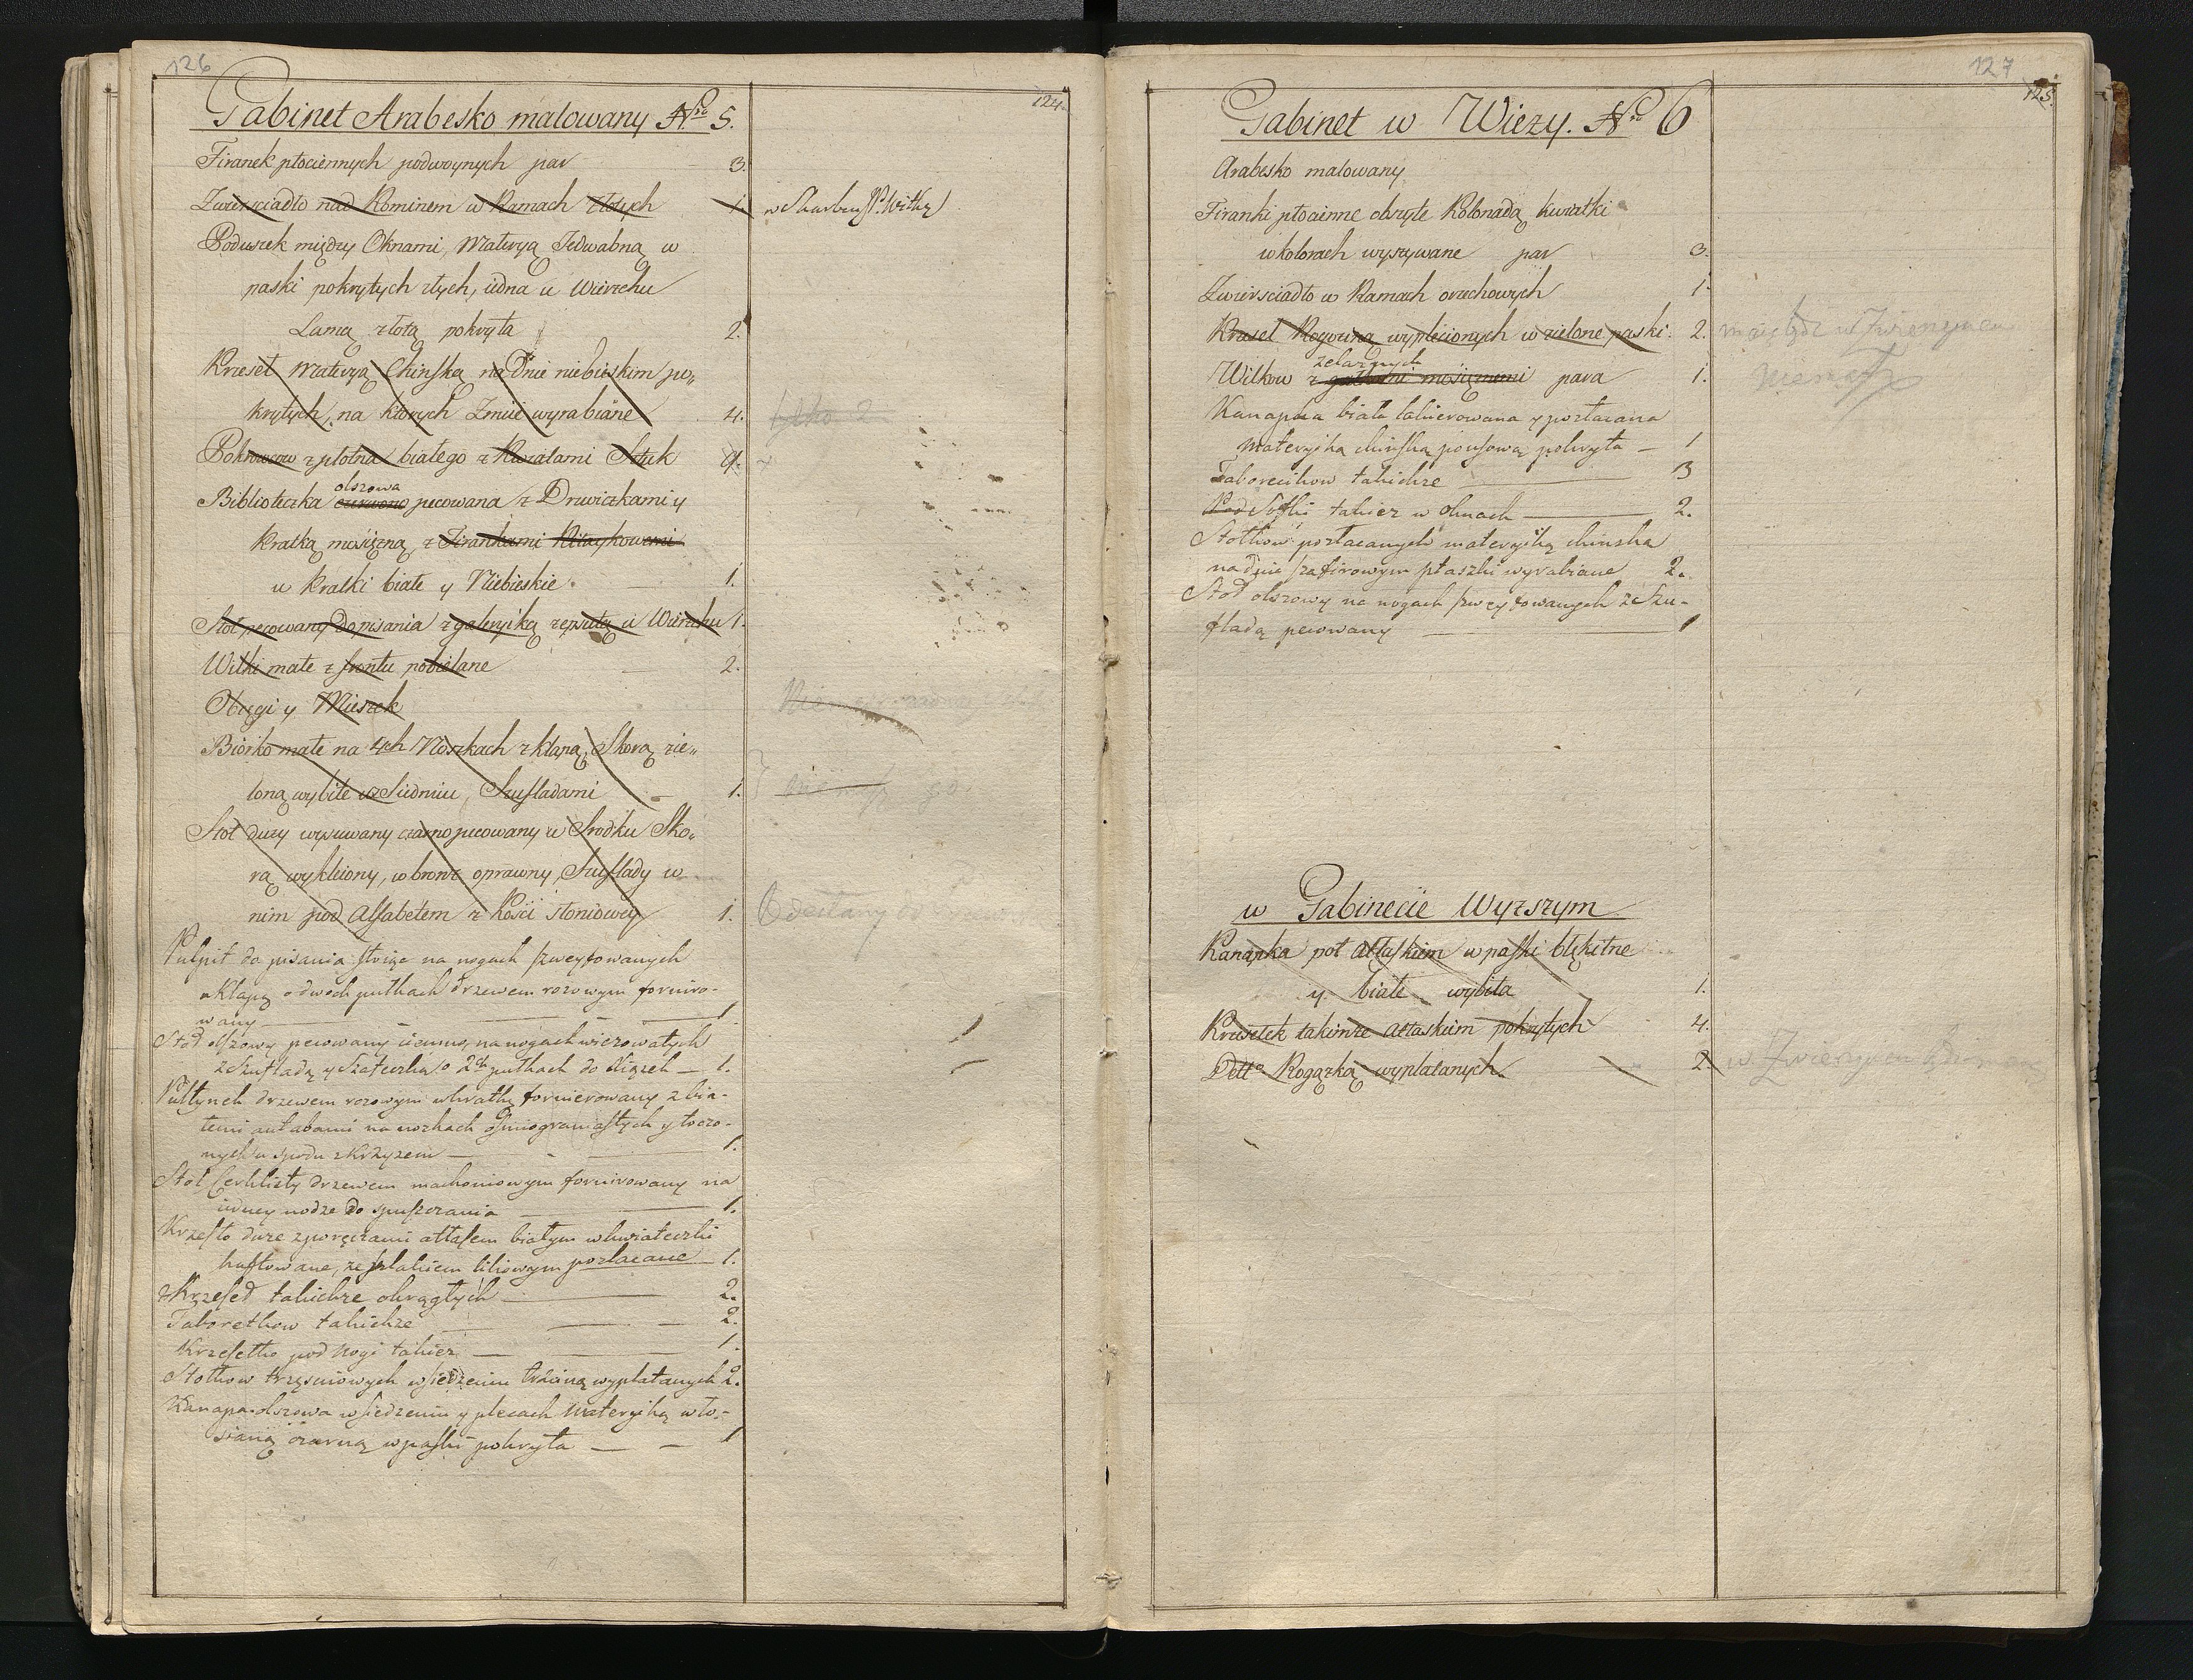 126
124.
Gabinet Arabesko malowany Nro 5.
Firanek płociennych podwoynych par 3.
Zwierściadło nad Kominem w Ramach złotych 1. w Skarbcu JP. Witkę
Poduszek między Oknami, Materyą Jedwabną w
paski pokrytych złych, iedna u Wierzchu
Lamą złotą pokryta 2.
Krzeseł Materyą Chińską na Dnie niebieskim po„
krytych, na których Zmiie wyrabiane 4. tylko 2
Pokrowcow z płótna białego z Kwiatami Sztuk
olszowa
Biblioteczka czerwono pecowana z Drzwiczkami y
Kratką mosiężną z Firankami Kitaykowemi
w Kratki białe y Niebieskie 1.
Stoł pecowany do pisania z galeryiką zepsutą u Wierzchu 1.
Wilki małe z frontu pobielane 2.
Obcęgi y Mieszek
Biórko małe na 4ch Noszkach z klapą Skorą zie„
loną wybite ze Siedmiu Szufladami 1.
Stoł duży wysuwany czarno pecowany w Srodku Sko„
rą wykleiony, w bronz oprawny, Szuflady w
nim pod Alfabetem z Kości słoniowey 1. Odesłany do
Pulpit do pisania stoiąc na nogach szweyfowanych
z Klapą o dwoch pułkach drzewem rożowym forniro-
wany 1
Stoł olszowy pecowany ciemno, na nogach wieżowatych
z Szufladą y Szafeczką o 2ch pułkach do Xiążek 1.
Pultynek drzewem rożowym w kratkę fornierowany z bia-
łemi antabami na nożkach osmiograniastych y toczo-
nych u spodu z Krzyżem 1.
Stół Cerklisty drzewem machoniowym fornirowany na
iedney nodze do spuszczania 1.
Krzesło duże z poręczami attłasem białym w kwiateczki
haftowane, ze szlakiem liliowym pozłacane 1.
Krzeseł takichże okrągłych 2.
Taboretkow takichże 2.
Krzesełko pod Nogi takież 1.
Stołkow trzęsniowych w siedzeniu trzciną wyplatanych 2.
Kanapa olszowa w siedzeniu y plecach Materyiką wło-
sianą czarną w paski pokryta 1
127
125.
Gabinet w Wiezy. Nro 6
Arabesko malowany
Firanki płocienne obszyte Kolonadą kwiatki
w kolorach wyszywane par 3.
Zwierściadło w Ramach orzechowych 1.
Krzeseł Rogoziną wyplecionych w zielone paski 2. maią bydz w Zwierzyncu
żelaznych
Wilkow z gałkami mosięznemi para 1.
Kanapka biała lakierowana y pozłacana
Materyiką chińską ponsową pokryta 1
Taborecikow takichże 3
Sofki takież w oknach 2.
Stołkow pozłacanych materyiką chińską
na dnie szafirowym ptaszki wyrabiane 2.
Stoł olszowy na nogach szweyfowanych z Szu-
fladą pecowany 1
w Gabinecie Wyzszym
Kanapka pół attłaskiem w paski błękitne
y białe wybita 1.
Krzesełek takimże attaskiem pokrytych 4.
Detto Rogożką wyplatanych 2. w Zwierzyncu